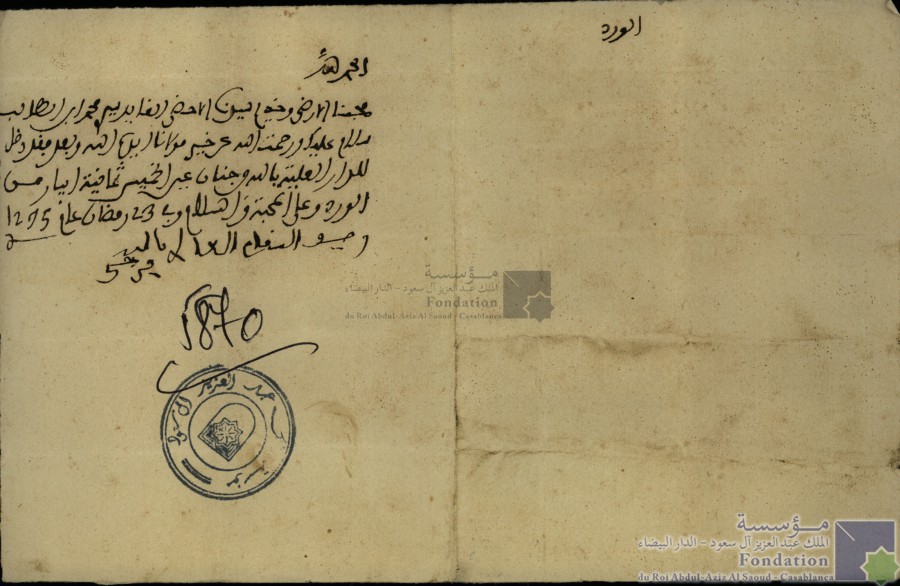 الورد
الحمد لله
محبنا الارضى وخديم سيدنا الاحضى القايد سيدي محمد ابن الطالب
سلام عليك ورحمت الله عن خير مولانا ايده الله وبعد فقد دخل
للدار العلية بالله وجنان عبد الخميس ثمانية ابيار من
الورد وعلى المحبة والسلام وفي 23 رمضان عام 1275
مؤسسة
الملك عبد العزيز آل سعود - الدار البيضاء
Fondation
du Roi Abdul-Aziz Al Saoud - Casablanca
5870
عبد العزيز آل سعود
مؤسسة
مؤسسة
الملك عبد العزيز آل سعود - الدار البيضاء
Fondation
du Roi Abdul-Aziz Al Saoud - Casablanca